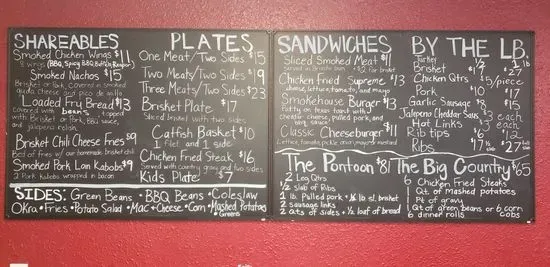 SHAREABLES
Smoked Chicken Wings $11
8 wings (BBQ, Spicy BBQ, Buffalo,
Smoked Nachos $15
Brisket or Pork, covered in smoked
queso cheese and pico de gallo
Loaded Fry Bread $13
covered with beans, topped
with Brisket or Pork, BBQ sauce,
and jalapeno relish
Brisket Chili Cheese Fries $9
Bed of fries w/ our homemade brisket chili
Smoked Pork Loin Kabobs $9
2 Pork Kabobs wrapped in bacon
PLATES
One Meat/Two Sides $15
Two Meats/Two Sides $19
Three Meats/Two Sides $23
Brisket Plate $17
Sliced brisket with two sides
Catfish Basket $10
1 filet and 1 side
Chicken Fried Steak $16
Served with country gravy and two sides
Kids Plate $7
SIDES: Green Beans • BBQ Beans • Coleslaw
Okra • Fries • Potato Salad • Mac + Cheese • Corn • Mashed Potatoes
• Greens
SANDWICHES
Sliced Smoked Meat $11
served on Brioche bun + $2 for brisket
Chicken Fried Supreme $13
cheese, lettuce, tomato, and mayo
Smokehouse Burger $13
Patty on texas toast with
cheddar cheese, pulled pork, and
bbq sauce
Classic Cheeseburger $11
Lettuce, tomato, pickle, onion, mayo or mustard
BY THE LB.
Turkey ½ 1 lb
Brisket $27
Chicken Qtrs. $5/piece
Pork $17
Garlic Sausage $8 $15
Jalapeno Cheddar Saus. $3 each
Hot Links $3 each
Rib tips
Ribs $17 ½ slab $27 full slab
The Pontoon $81
2 Leg Qtrs
½ slab of Ribs
1 lb. Pulled pork + ½ lb. sl. brisket
2 sausage links
2 qts. of sides + ½ loaf of bread
The Big Country $65
6 Chicken Fried Steaks
Qt. of mashed potatoes
Pt. of gravy
Qt. of green beans or 6 corn cobs
6 dinner rolls